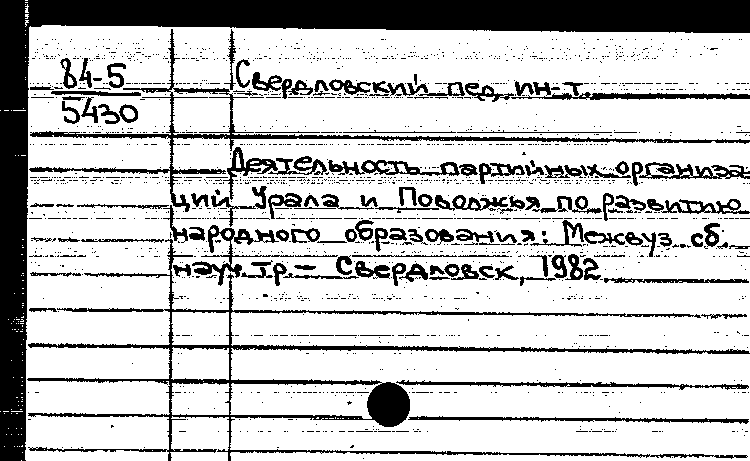 84-5
5430
Свердловский пед. ин-т.
Деятельность партийных организа-
ций Урала и Поволжья по развитию
народного образования: Межвуз. сб.
науч. тр. — Свердловск, 1982.